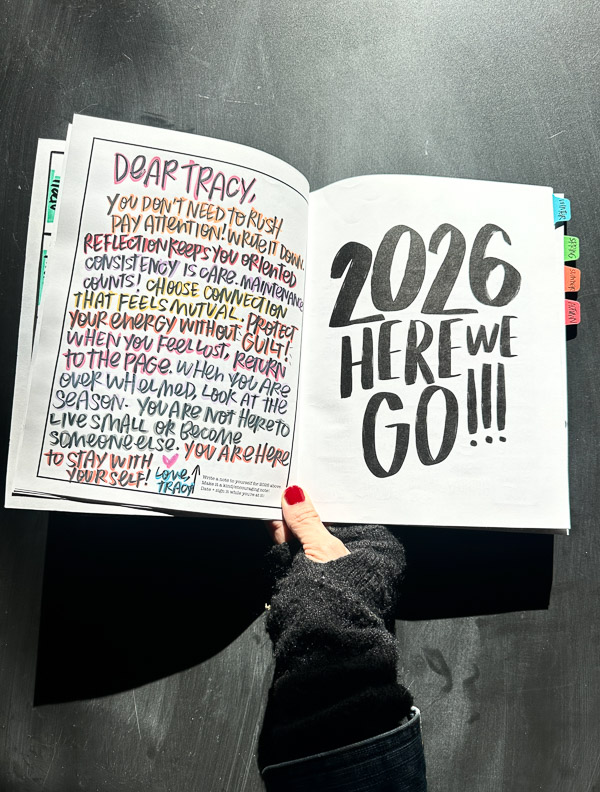 DEAR TRACY,
YOU DON'T NEED TO RUSH.
PAY ATTENTION! WRITE IT DOWN.
REFLECTION KEEPS YOU ORIENTED
CONSISTENCY IS CARE. MAINTENANCE
COUNTS! CHOOSE CONNECTION
THAT FEELS MUTUAL. PROTECT
YOUR ENERGY WITHOUT GUILT!
WHEN YOU FEEL LOST, RETURN
TO THE PAGE. WHEN YOU ARE
OVERWHELMED, LOOK AT THE
SEASON. YOU ARE NOT HERE TO
LIVE SMALL OR BECOME
SOMEONE ELSE. YOU ARE HERE
TO STAY WITH
YOURSELF! LOVE,
TRACY
Write a note to yourself for 2026 above.
Make it a kind/encouraging note!
Date + sign it while you're at it!
2026
HERE WE
GO!!!
WINTER
SPRING
SUMMER